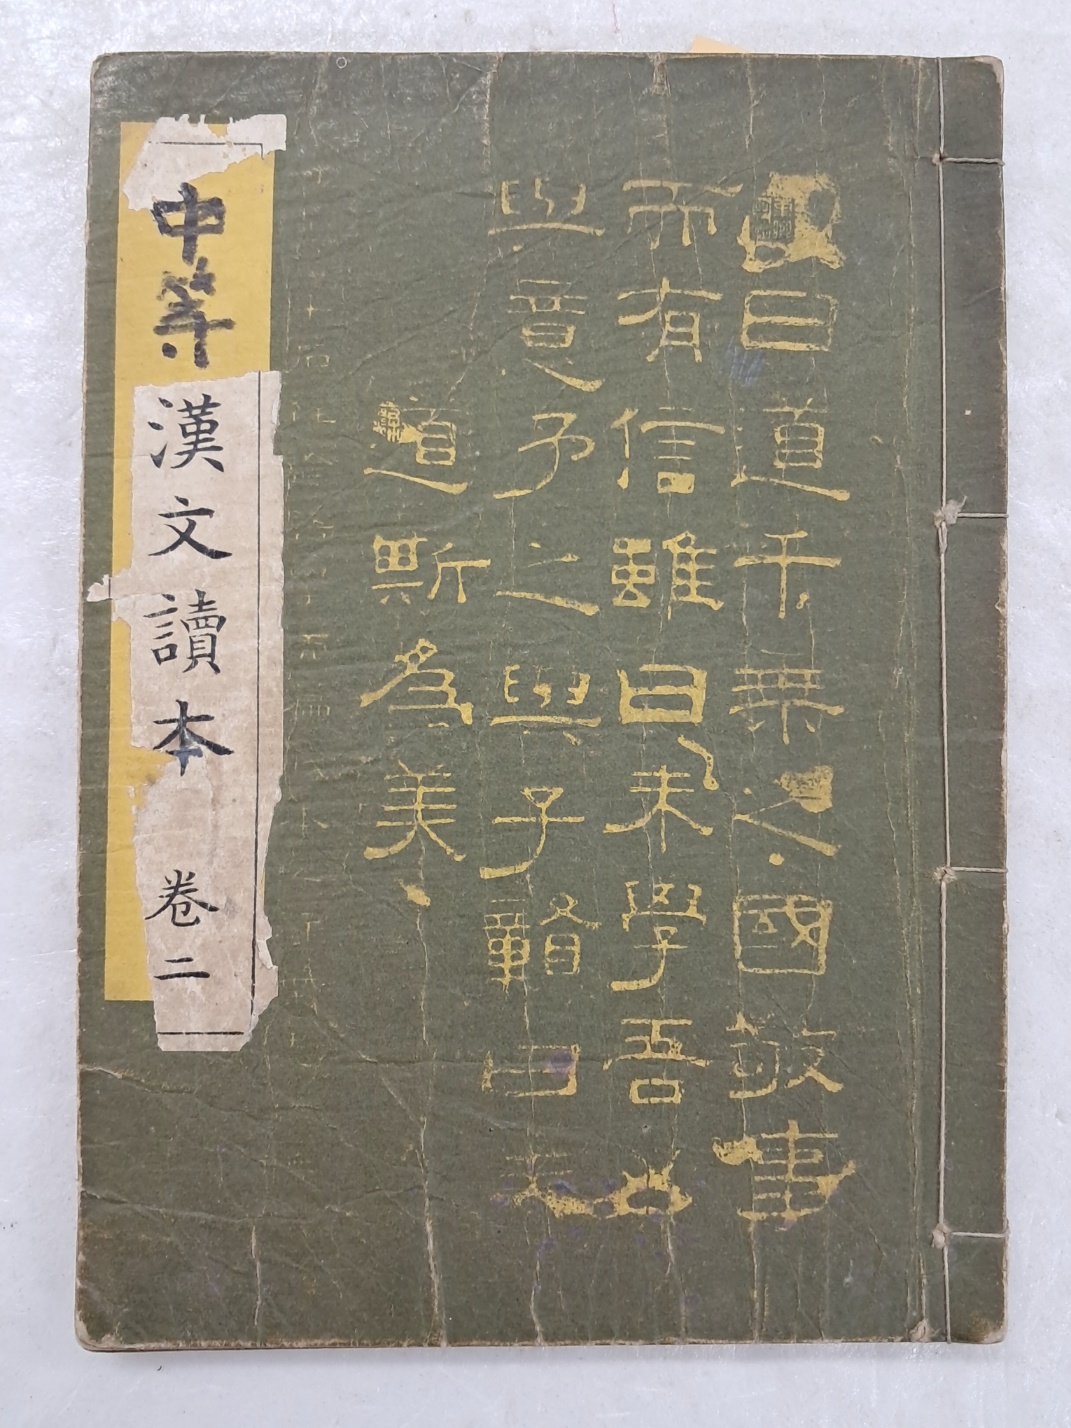 曰道千乘之國敬事
而有信雖曰未學吾必
與意予之與子贛曰夫
道斯為美
中等漢文讀本 卷二